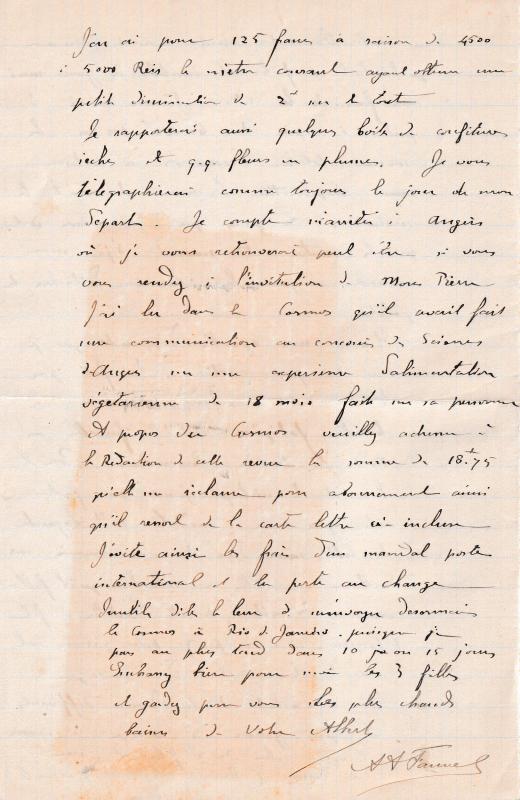 J'en ai pour 125 francs à raison de 4500
à 5000 Reis le mètre courant ayant obtenu une
petite diminution de 2f sur le tout
Je rapporterai aussi quelques boites de confitures
sèches et q.q. fleurs en plumes. Je vous
télégraphierai comme toujours le jour de mon
départ. Je compte m'arrêter à Angers
où je vous retrouverai peut être si vous
vous rendez à l'invitation de Pierre
J'ai lu dans le Cosmos qu'il avait fait
une communication au des Sciences
d'Angers sur une experience d'alimentation
végétarienne de 18 mois faite sur sa personne
A propos du Cosmos veuillez adresser à
la Rédaction de cette revue la somme de 18f.75
qu'elle me réclame pour abonnement ainsi
qu'il ressort de la carte lettre ci-incluse
J'évite ainsi les frais d'un mandat poste
international et la perte au change
Inutile dite le leur de m'envoyer desormais
le Cosmos à Rio de Janeiro. puisque je
pars au plus tard dans 10 j. ou 15 jours
Embrassez bien pour moi les 3 filles
et gardez pour vous les plus chauds
baisers de Votre Albert